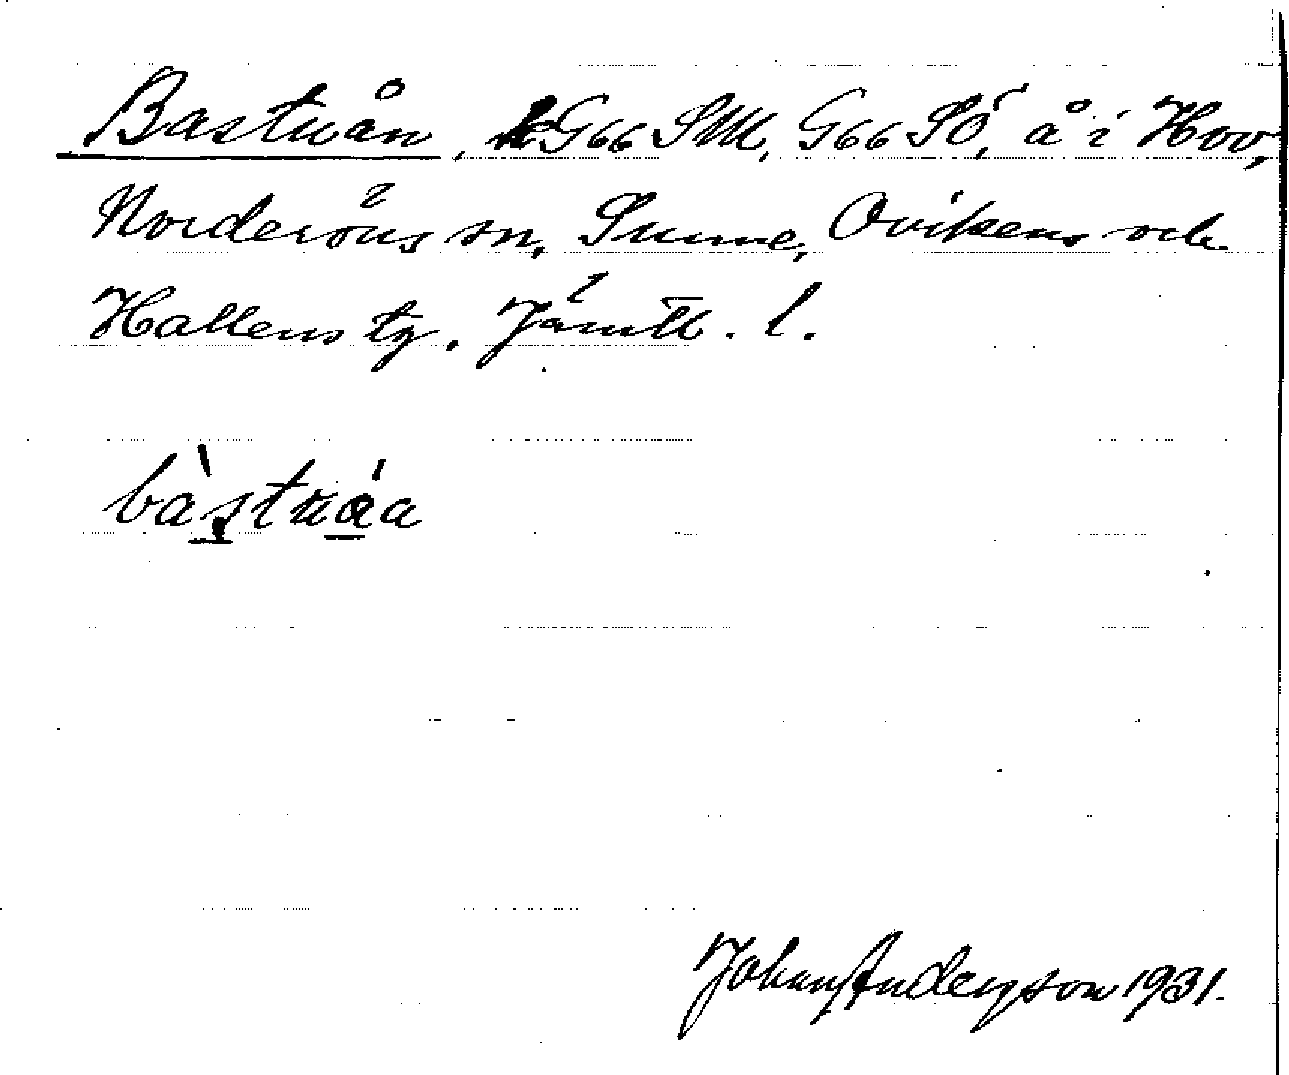 Bastuån, G66 SM, G66 SÖ, å i Hov,
Norderöns sn, Sunne, Ovikens och
Hallens tg. Jämtl. l.
bàstuáa
Johan Anderson 1931.